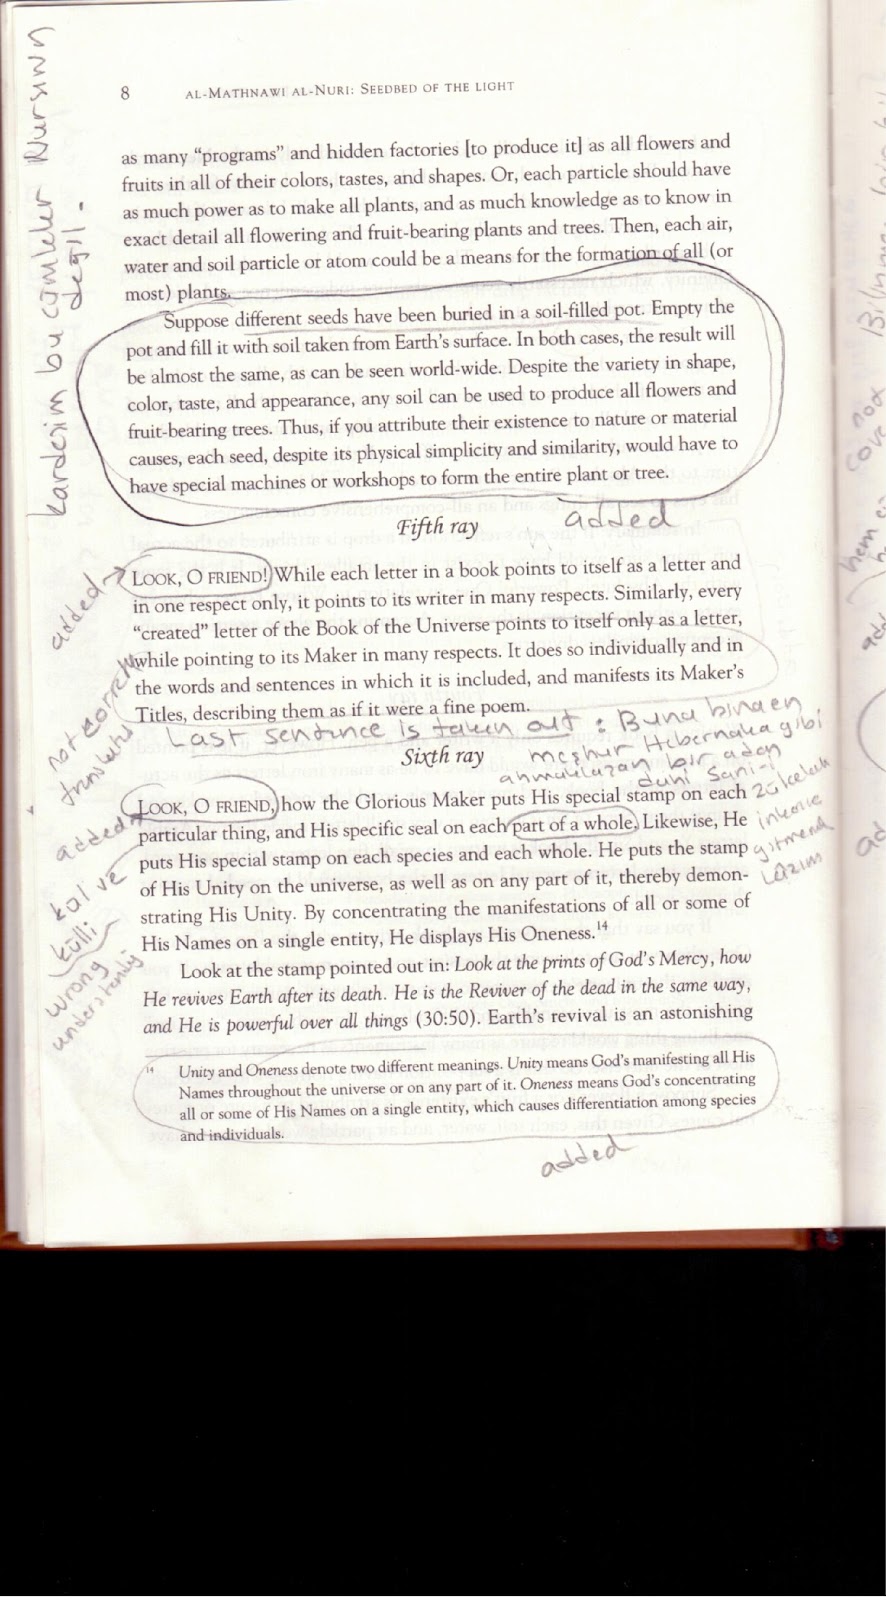 8 AL-MATHNAWI AL-NURI: SEEDBED OF THE LIGHT
as many “programs” and hidden factories [to produce it] as all flowers and
fruits in all of their colors, tastes, and shapes. Or, each particle should have
as much power as to make all plants, and as much knowledge as to know in
exact detail all flowering and fruit-bearing plants and trees. Then, each air,
water and soil particle or atom could be a means for the formation of all (or
most) plants.
Suppose different seeds have been buried in a soil-filled pot. Empty the
pot and fill it with soil taken from Earth’s surface. In both cases, the result will
be almost the same, as can be seen world-wide. Despite the variety in shape,
color, taste, and appearance, any soil can be used to produce all flowers and
fruit-bearing trees. Thus, if you attribute their existence to nature or material
causes, each seed, despite its physical simplicity and similarity, would have to
have special machines or workshops to form the entire plant or tree.
added
Fifth ray
LOOK, O FRIEND! While each letter in a book points to itself as a letter and
in one respect only, it points to its writer in many respects. Similarly, every
“created” letter of the Book of the Universe points to itself only as a letter,
while pointing to its Maker in many respects. It does so individually and in
the words and sentences in which it is included, and manifests its Maker’s
Titles, describing them as if it were a fine poem.
Last sentence is taken out : Buna binaen
meşhur Hebennaka gibi
ahmaklazan bir adam
dahi Sani-i
zülcelali
inkara
gitmemek
Lazım
Sixth ray
LOOK, O FRIEND, how the Glorious Maker puts His special stamp on each
particular thing, and His specific seal on each part of a whole. Likewise, He
puts His special stamp on each species and each whole. He puts the stamp
of His Unity on the universe, as well as on any part of it, thereby demon-
strating His Unity. By concentrating the manifestations of all or some of
His Names on a single entity, He displays His Oneness.14
Look at the stamp pointed out in: Look at the prints of God’s Mercy, how
He revives Earth after its death. He is the Reviver of the dead in the same way,
and He is powerful over all things (30:50). Earth’s revival is an astonishing
14 Unity and Oneness denote two different meanings. Unity means God’s manifesting all His
Names throughout the universe or on any part of it. Oneness means God’s concentrating
all or some of His Names on a single entity, which causes differentiation among species
and individuals.
added
kardeşim bu cümleler Nursinin
degil.
added
not correct
translated
added
kül ve
külli
wrong
understanding